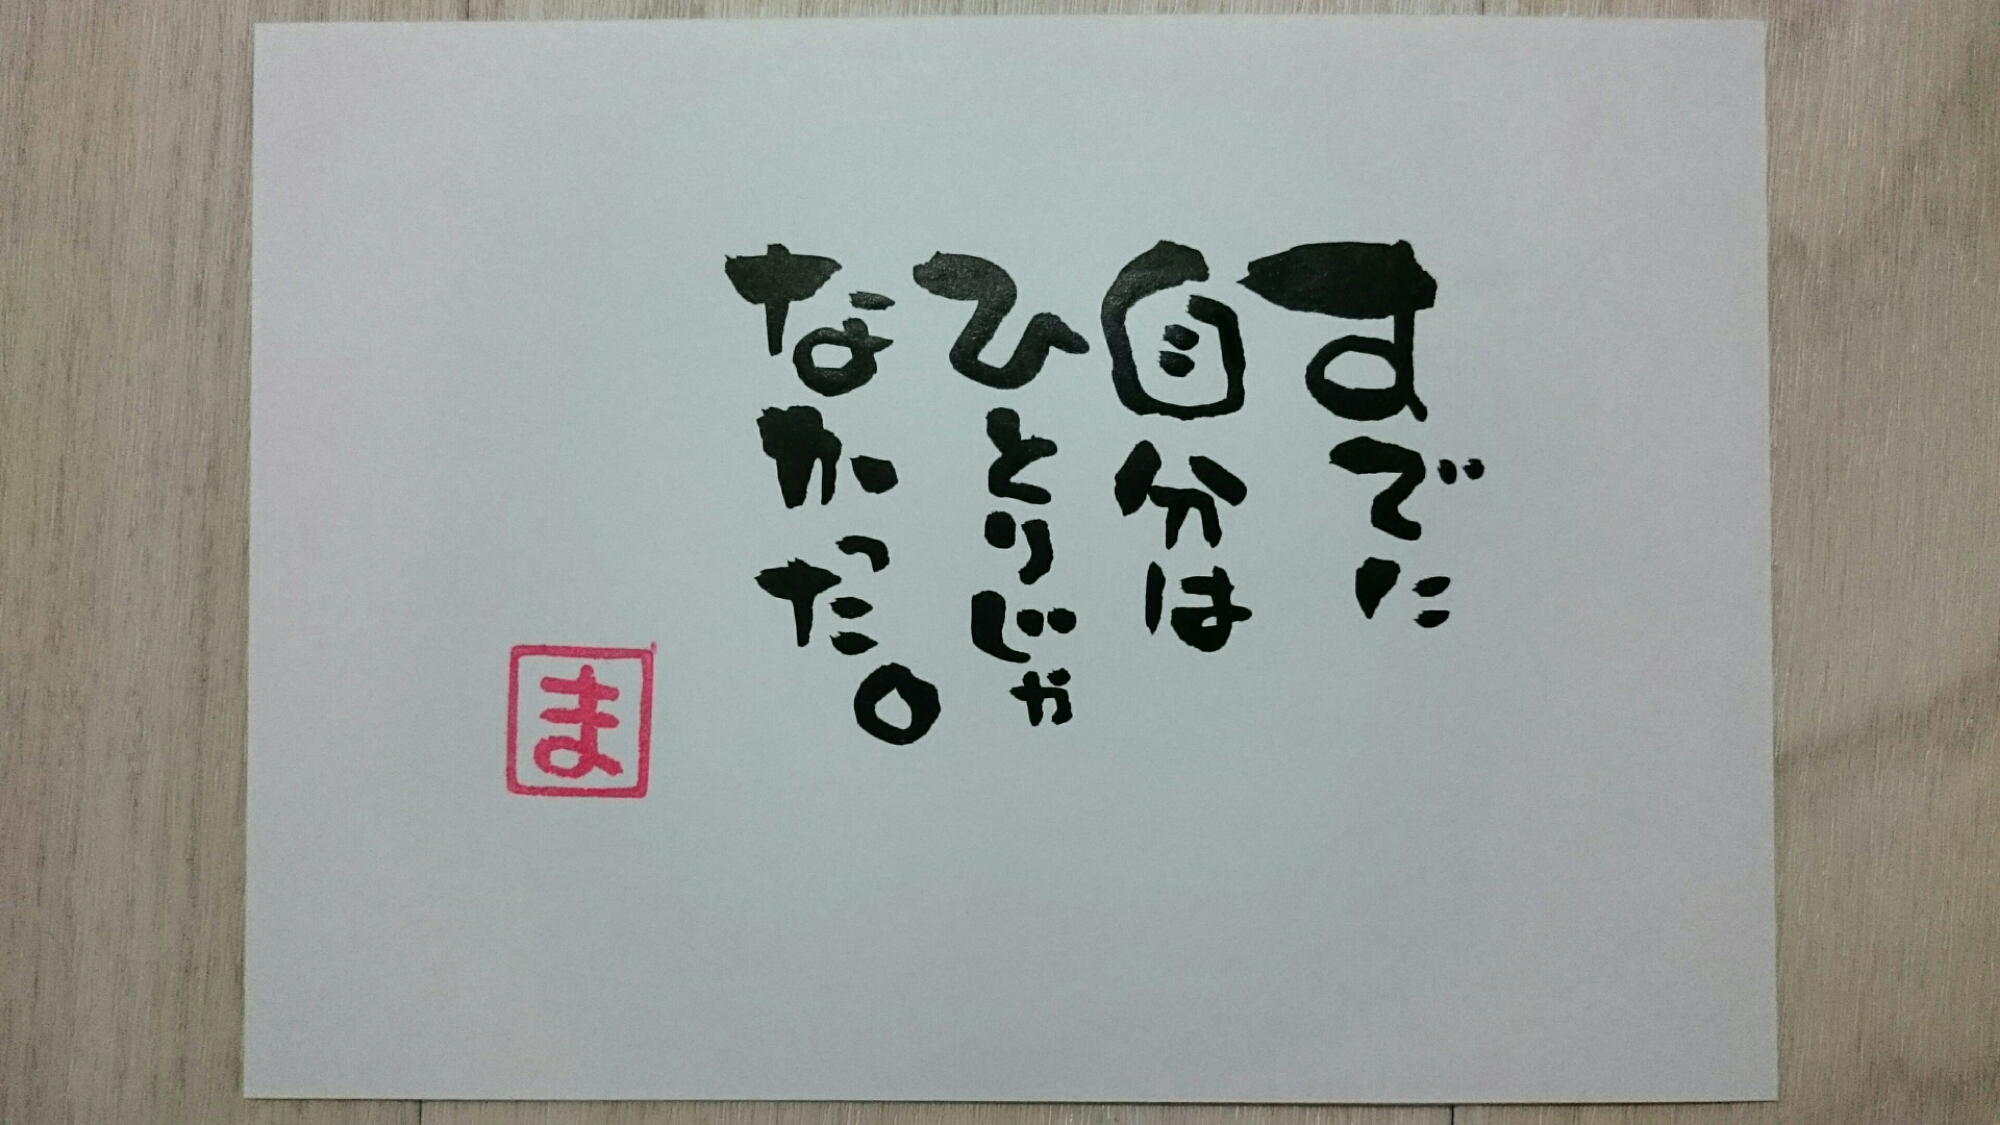 すでに
自分は
ひとりじゃ
なかった。
ま